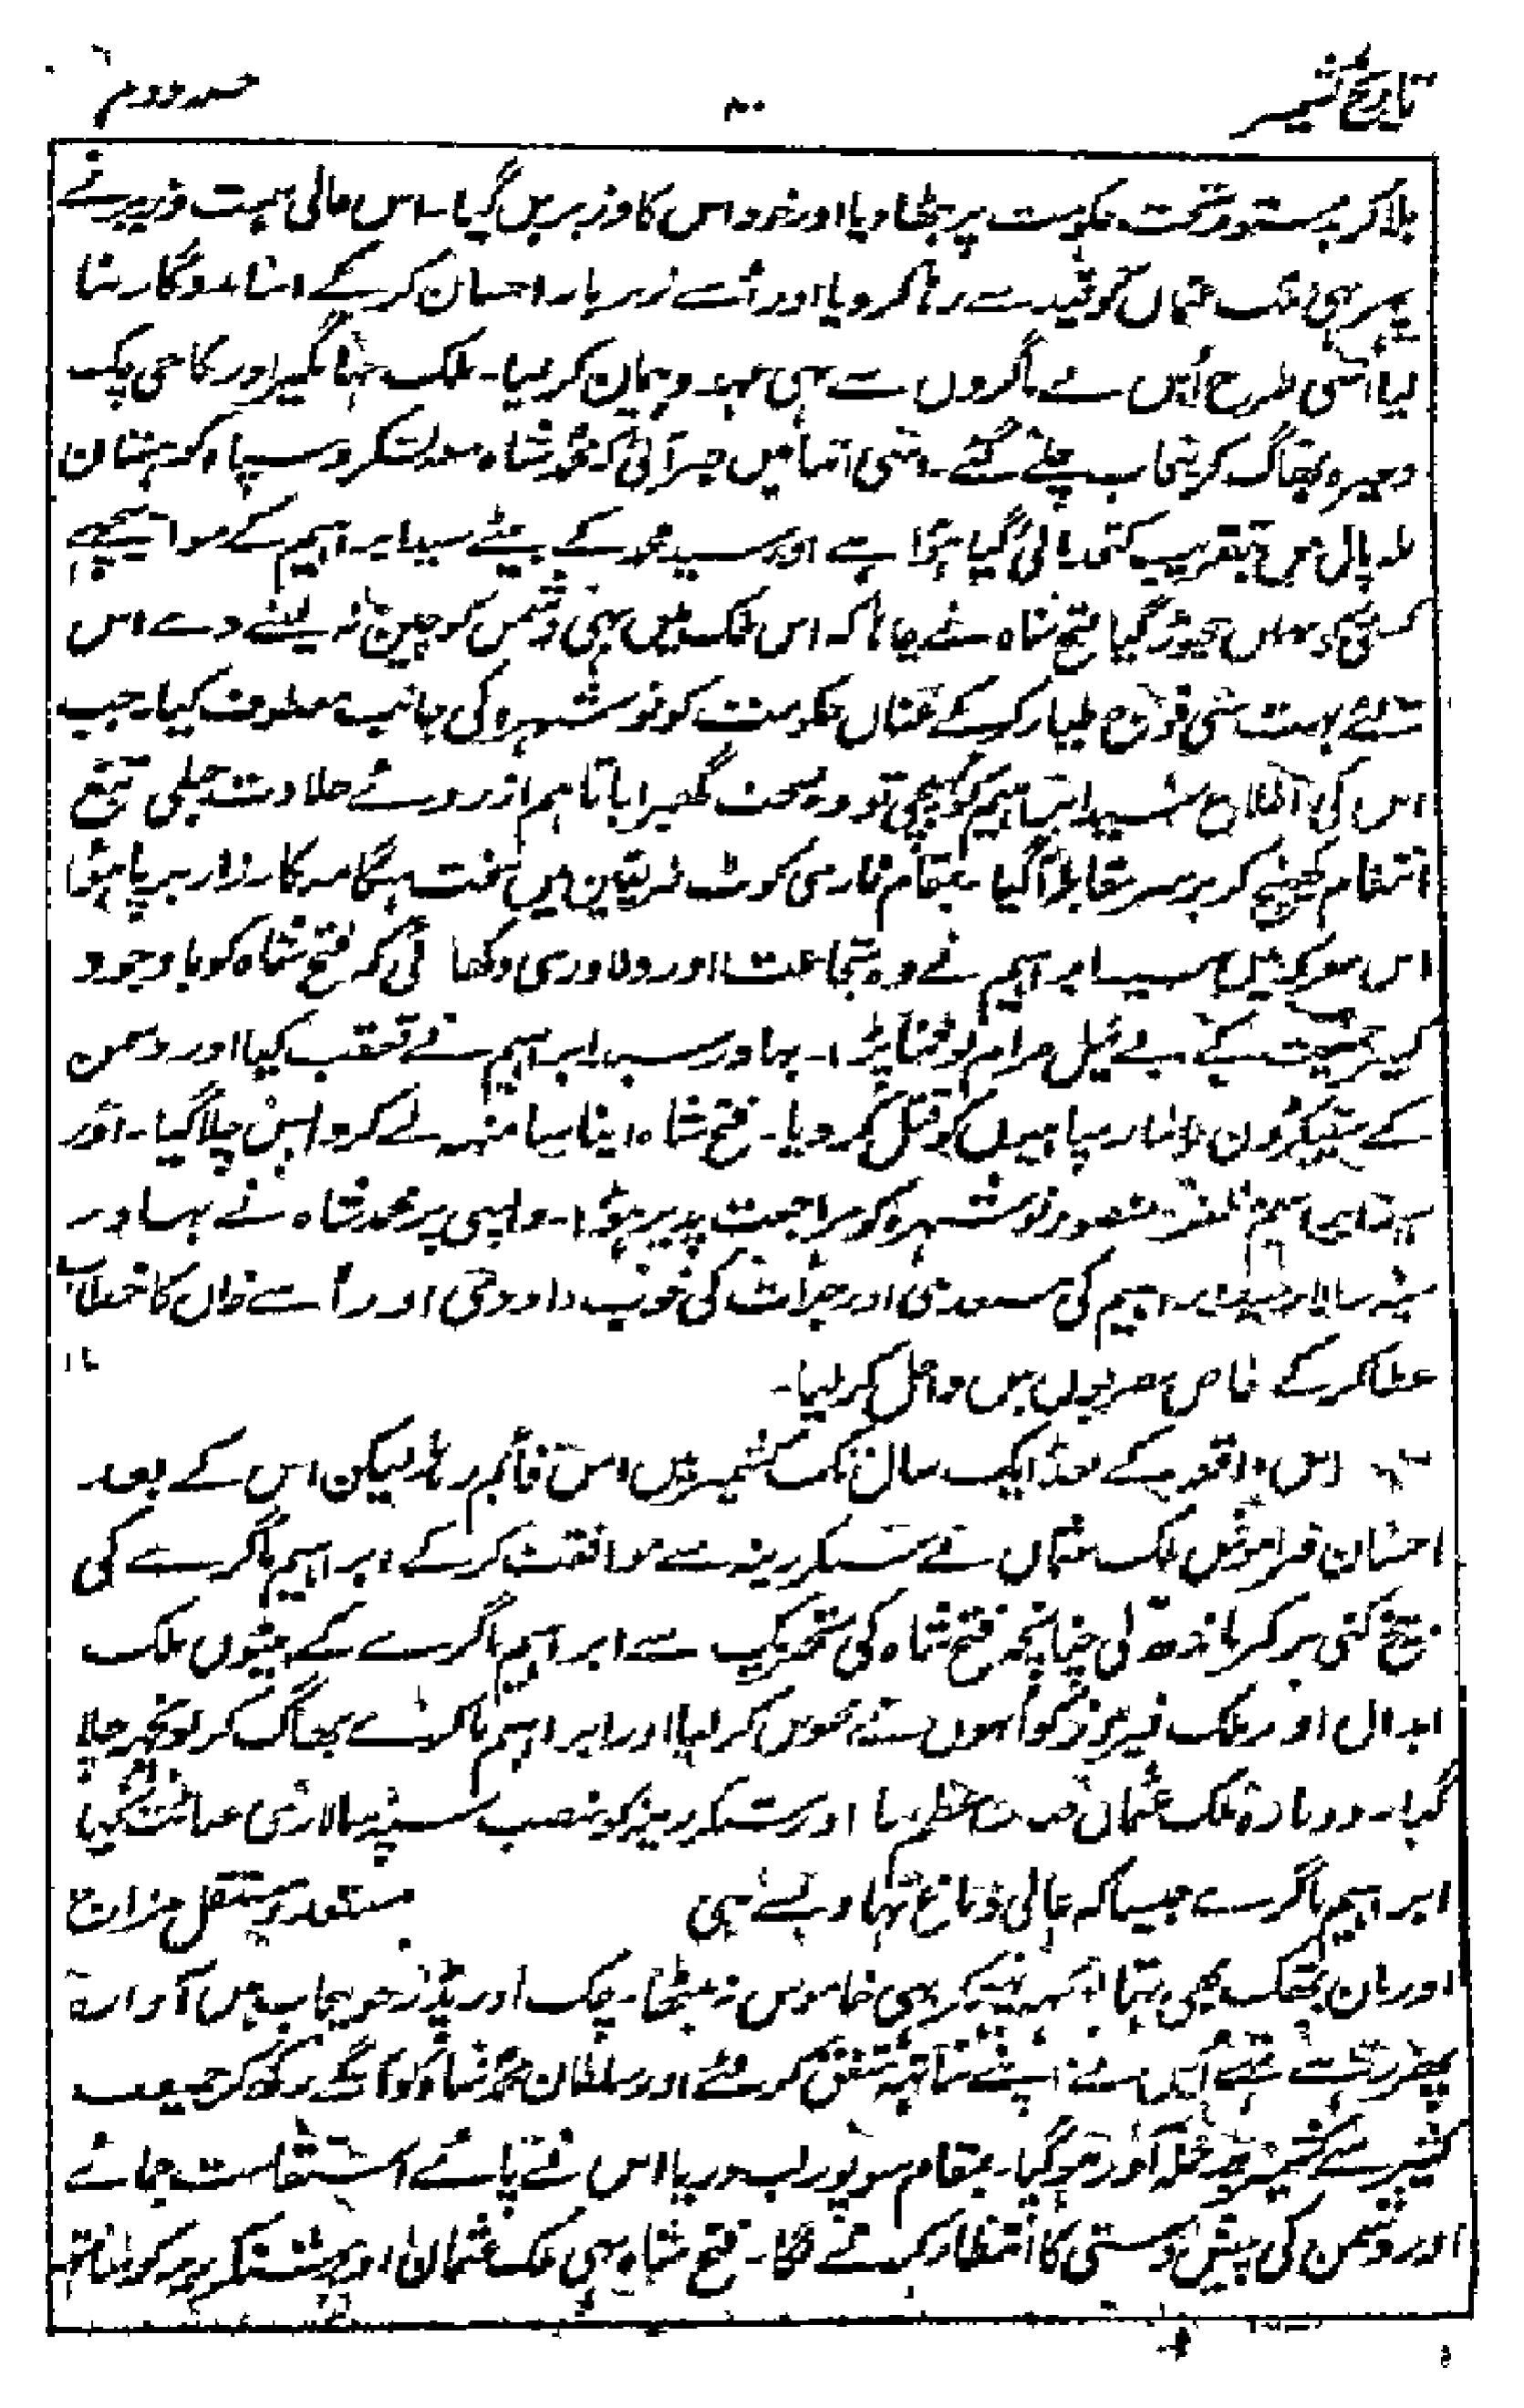 تاریخ کشمیر
حصہ دوم
بلا کر بدستور تخت حکومت پر بٹھا دیا اور خود اس کا وزیر بن گیا۔ اس عالی ہمت وزیر نے
پھر بھی ملک عثمان کو قید سے رہا کر دیا اور اُسے زیر بار احسان کر کے اپنا مددگار بنا
لیا اسی طرح اُس نے ماگروں سے بھی عہد و پیمان کر لیا۔ ملک جہانگیر اور کاجی چک
وغیرہ بھاگ کر پنجاب چلے گئے۔ اسی اثنا میں خبر آئی کہ محمد شاہ معہ لشکر و سپاہ کوہستان
میں بتقریب کتخدائی گیا ہوا ہے اور سید محمد کے بیٹے سید ابراہیم کے سوا پیچھے
کسی کو وہاں چھوڑ گیا فتح شاہ نے چاہا کہ اس ملک میں بھی دشمن کو چین نہ لینے دے اس
لئے بہت سی فوج طیار کر کے عنان حکومت کو نوشہرہ کی جانب معطوف کیا۔ جب
اس کی اطلاع سید ابراہیم کو پہنچی تو وہ سخت گھبرایا تاہم از روئے جلادت جبلی تیغ
انتقام کھینچ کر برسر مقابلہ آ گیا۔ بمقام فارسی کوٹ فریقین میں سخت ہنگامہ کارزار برپا ہوا
اس معرکہ میں سید ابراہیم نے وہ شجاعت اور دلاوری دکھائی کہ فتح شاہ کو باوجود
کثیر جمعیت کے بے نیل مرام لوٹنا پڑا۔ بہادر سید ابراہیم نے تعقب کیا اور دشمن
کے سینکڑوں سپاہیوں کو قتل کر دیا۔ فتح شاہ اپنا سا منہ لے کر واپس چلا گیا۔ اور
سید ابراہیم مظفر و منصور نوشہرہ کو مراجعت پذیر ہوا۔ واپسی پر محمد شاہ نے بہادر
سپہ سالار سید ابراہیم کی مستعدی اور جرأت کی خوب داد دی اور اُسے خان کا خطاب
عطا کر کے خاص مقربوں میں داخل کر لیا۔
اس واقعہ کے بعد ایک سال تک کشمیر میں امن قائم رہا۔ لیکن اس کے بعد
احسان فراموش ملک عثمان نے سنکر رینہ سے موافقت کر کے ابراہیم ماگرے کی
بیخ کنی پر کمر باندھ لی چنانچہ فتح شاہ کی تحریک سے ابراہیم ماگرے کے بیٹوں ملک
ابدال اور ملک فیروز کو اُنہوں نے محبوس کر لیا اور ابراہیم ماگرے بھاگ کر چلا
گیا۔ دوبارہ ملک عثمان اور سنکر رینہ کو منصب سپہ سالاری عنایت کیا
ابراہیم ماگرے جیسا کہ عالی دماغ تھا ویسے ہی مستعد مستقل مزاج
اور ان تھک بھی تھا بھی خاموش نہ بیٹھا۔ چک اور پڈر جو پنجاب میں آوارہ
پھر رہے تھے اُس نے اپنے ساتھ متفق کر لئے اور سلطان محمد شاہ کو آگے رکھ کر جمعیت
کثیر سے کشمیر پر حملہ آور ہو گیا۔ بمقام سوپور لب دریا اس نے پائے استقامت جمائے
اور دشمن کی پیش دستی کا انتظار کرنے لگا۔ فتح شاہ بھی ملک عثمان اور سنکر رینہ کو ساتھ